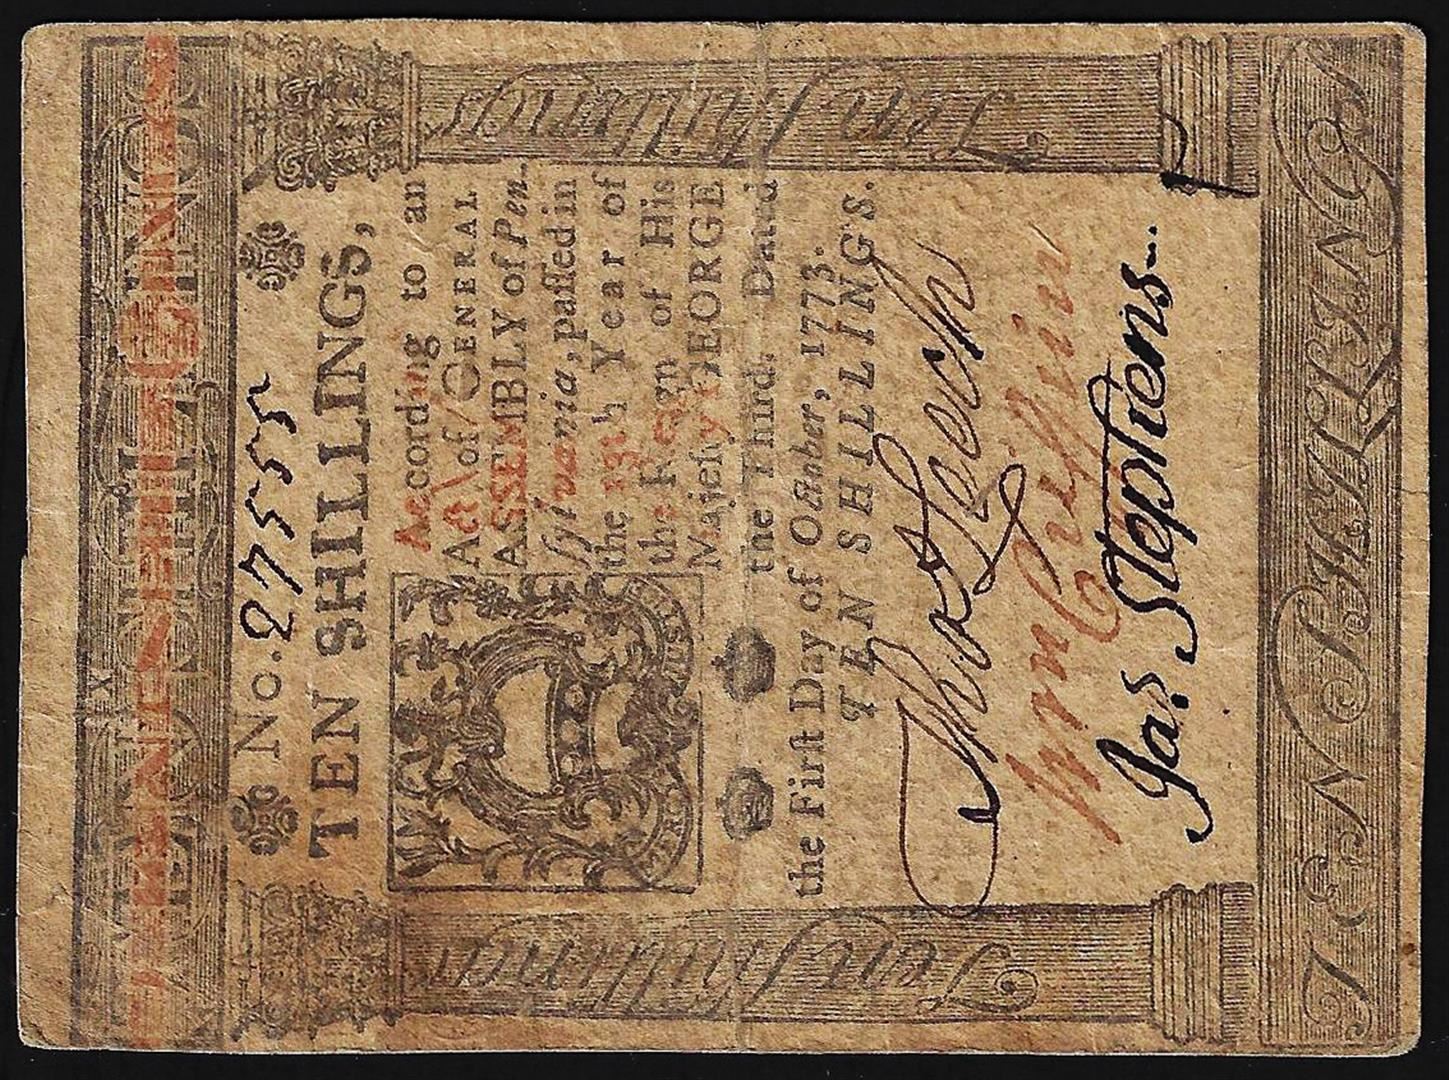 TEN SHILLINGS
No. 27555
TEN SHILLINGS,
According to an
Act of GENERAL
ASSEMBLY of Pen-
ſylvania, paſſed in
the 13th Year of
the Reign of His
Majeſty GEORGE
the Third. Dated
the Firſt Day of October, 1773.
TEN SHILLINGS.
Thos Leech
Jas. Stephens
Ten Shillings
Ten Shillings
TEN SHILLINGS